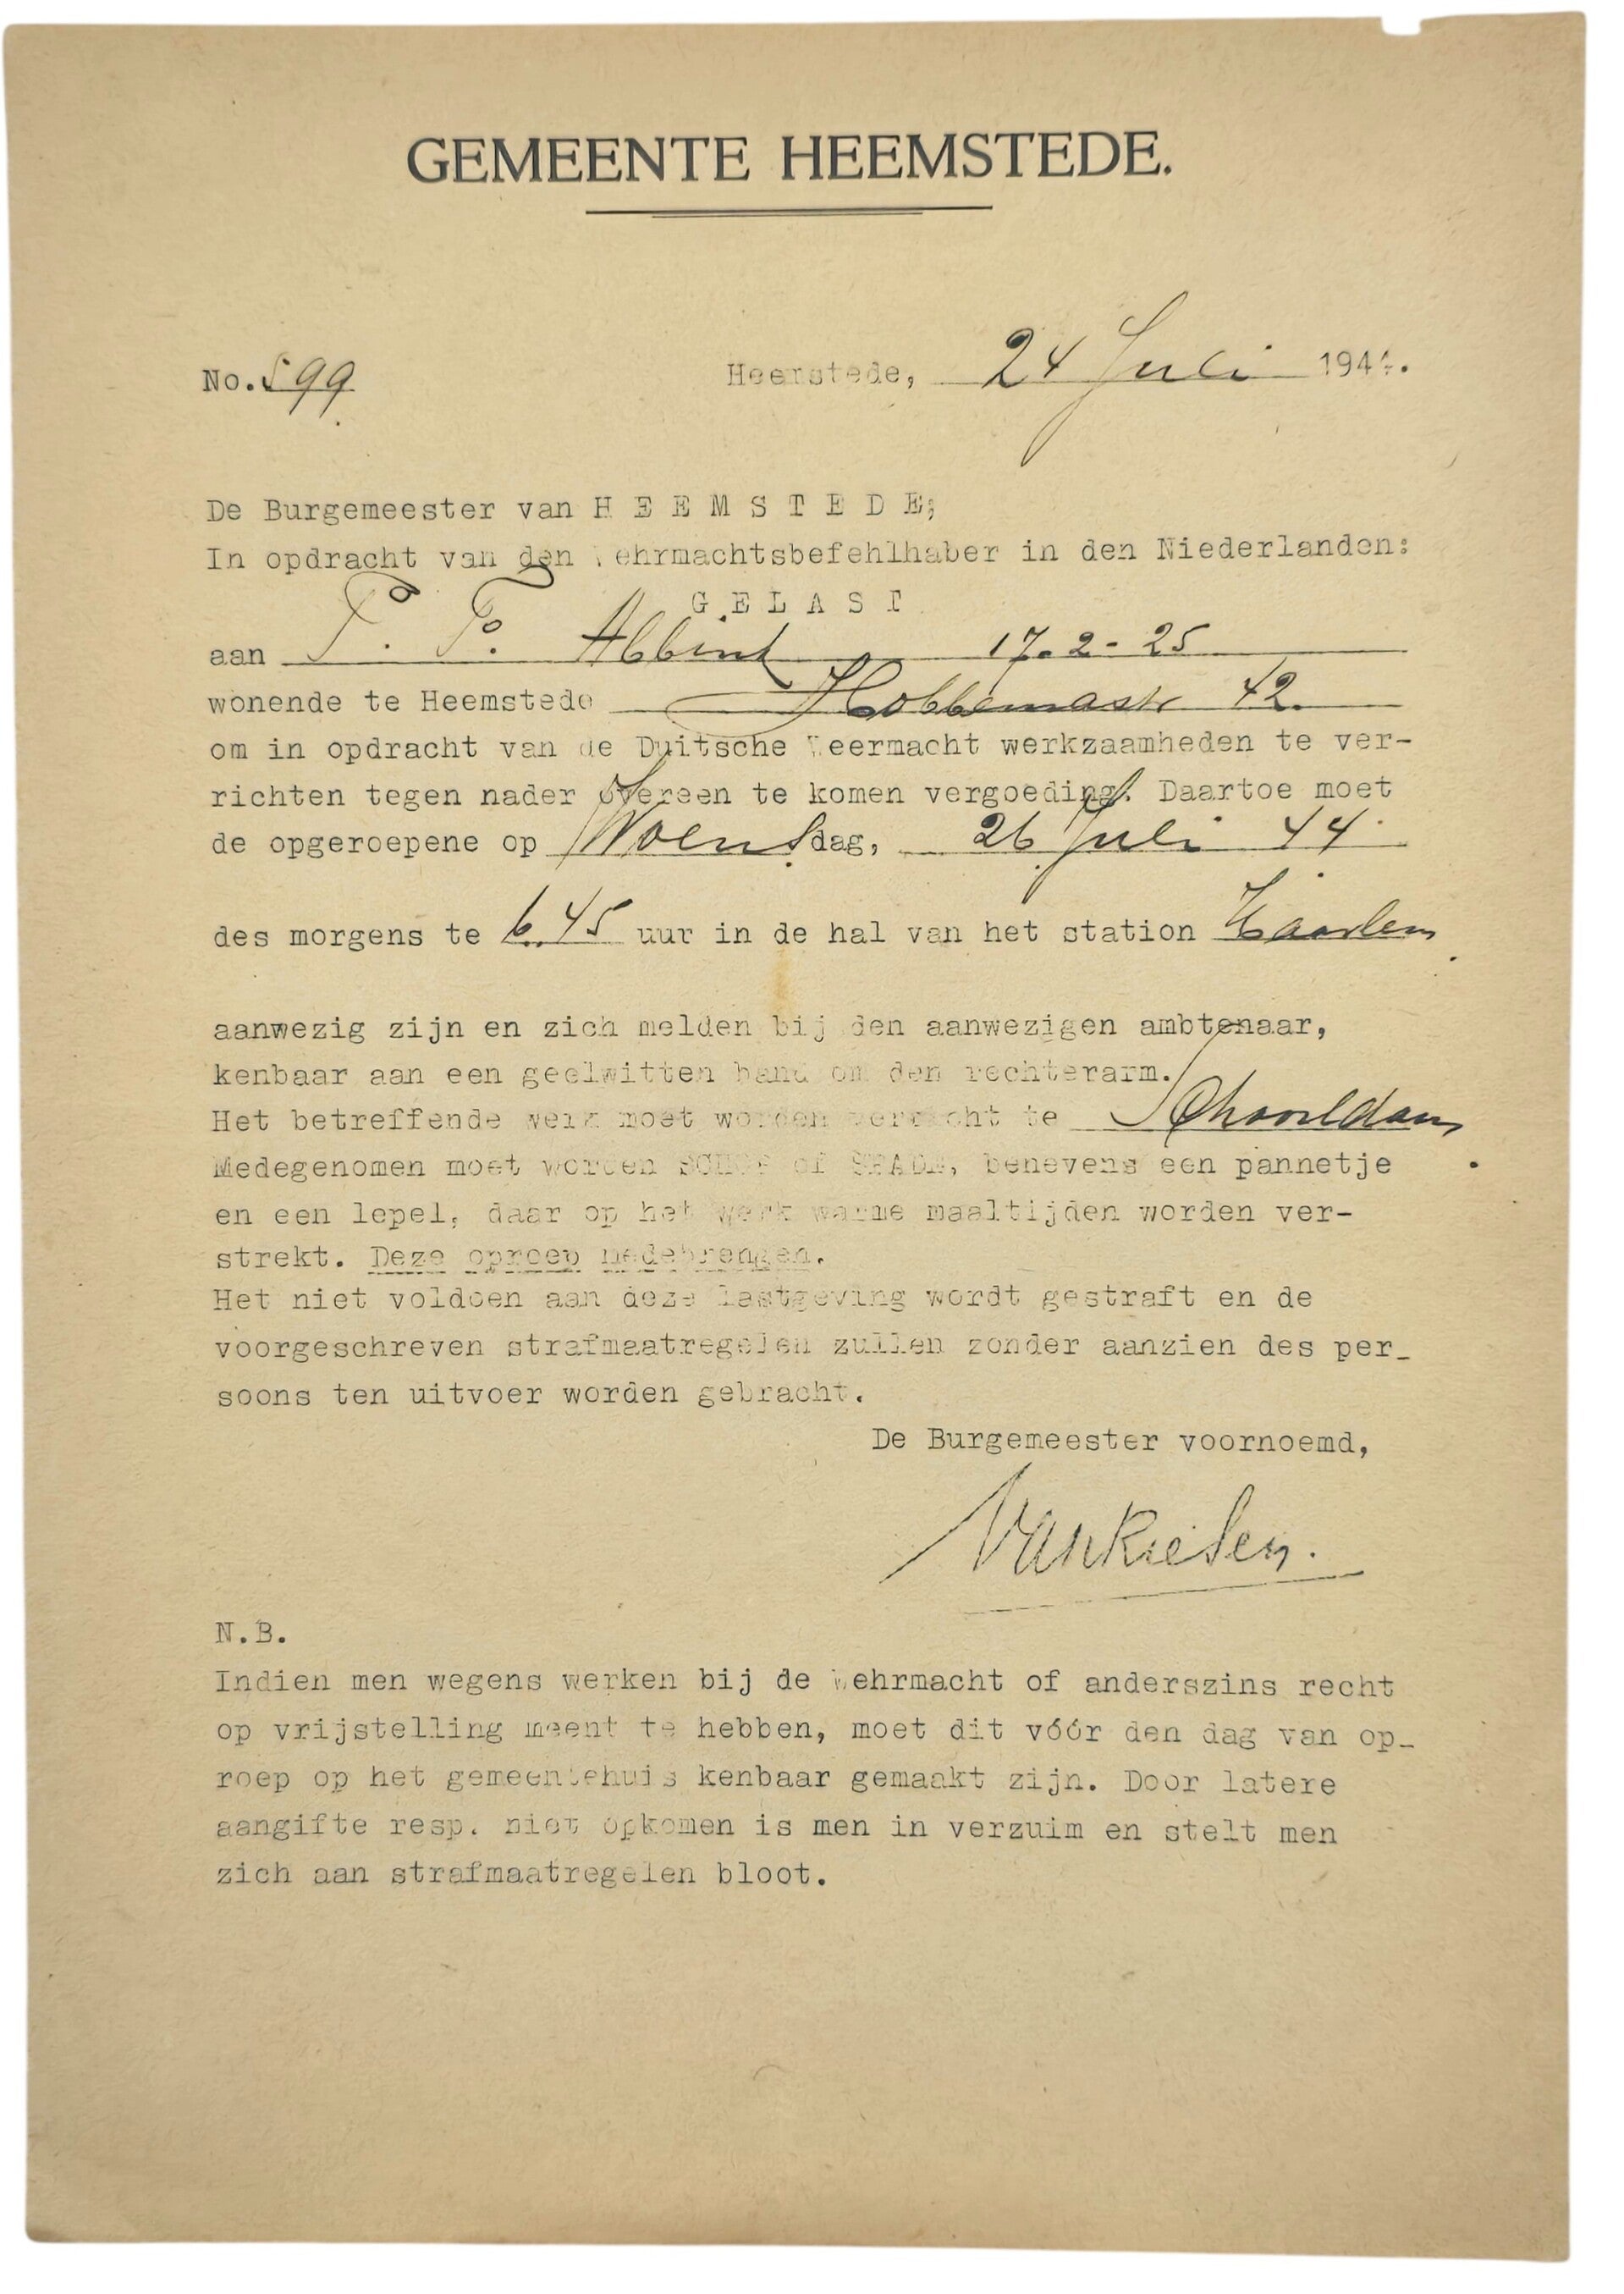 GEMEENTE HEEMSTEDE.
No. 599
Heemstede, 24 Juli 1944.
De Burgemeester van H E E M S T E D E;
In opdracht van den Wehrmachtsbefehlhaber in den Niederlanden:
G E L A S T
aan 17-2-25
wonende te Heemstede Hobbemastr 42.
om in opdracht van de Duitsche Weermacht werkzaamheden te ver-
richten tegen nader overeen te komen vergoeding. Daartoe moet
de opgeroepene op Woensdag, 26 Juli 44
des morgens te 6.45 uur in de hal van het station Haarlem
aanwezig zijn en zich melden bij den aanwezigen ambtenaar,
kenbaar aan een geelwitten band om den rechterarm.
Het betreffende werk moet worden verricht te Schoorldam.
Medegenomen moet worden SCHOP of SPADE, benevens een pannetje
en een lepel, daar op het werk warme maaltijden worden ver-
strekt. Deze oproep medebrengen.
Het niet voldoen aan deze lastgeving wordt gestraft en de
voorgeschreven strafmaatregelen zullen zonder aanzien des per_
soons ten uitvoer worden gebracht.
De Burgemeester voornoemd,
N.B.
Indien men wegens werken bij de Wehrmacht of anderszins recht
op vrijstelling meent te hebben, moet dit vóór den dag van op_
roep op het gemeentehuis kenbaar gemaakt zijn. Door latere
aangifte resp. niet opkomen is men in verzuim en stelt men
zich aan strafmaatregelen bloot.